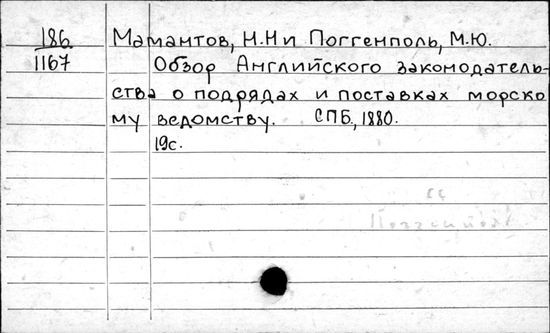 186 Мамантов, Н.Н и Поггенполь, М.Ю.
1167 Обзор Английского законодатель-
ства о подрядах и поставках морско
му ведомству. СПБ., 1880.
19с.
см
Поггенполь